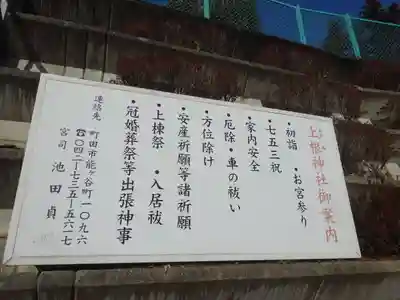 上根神社御案内
・初詣 ・お宮参り
・七五三祝
・家内安全
・厄除・車の祓い
・方位除け
・安産祈願等諸祈願
・上棟祭 ・入居祓
・冠婚葬祭等出張神事
連絡先 町田市能ヶ谷町一〇九六
☎〇四二ー七三五ー五六一七
宮司 池田貞